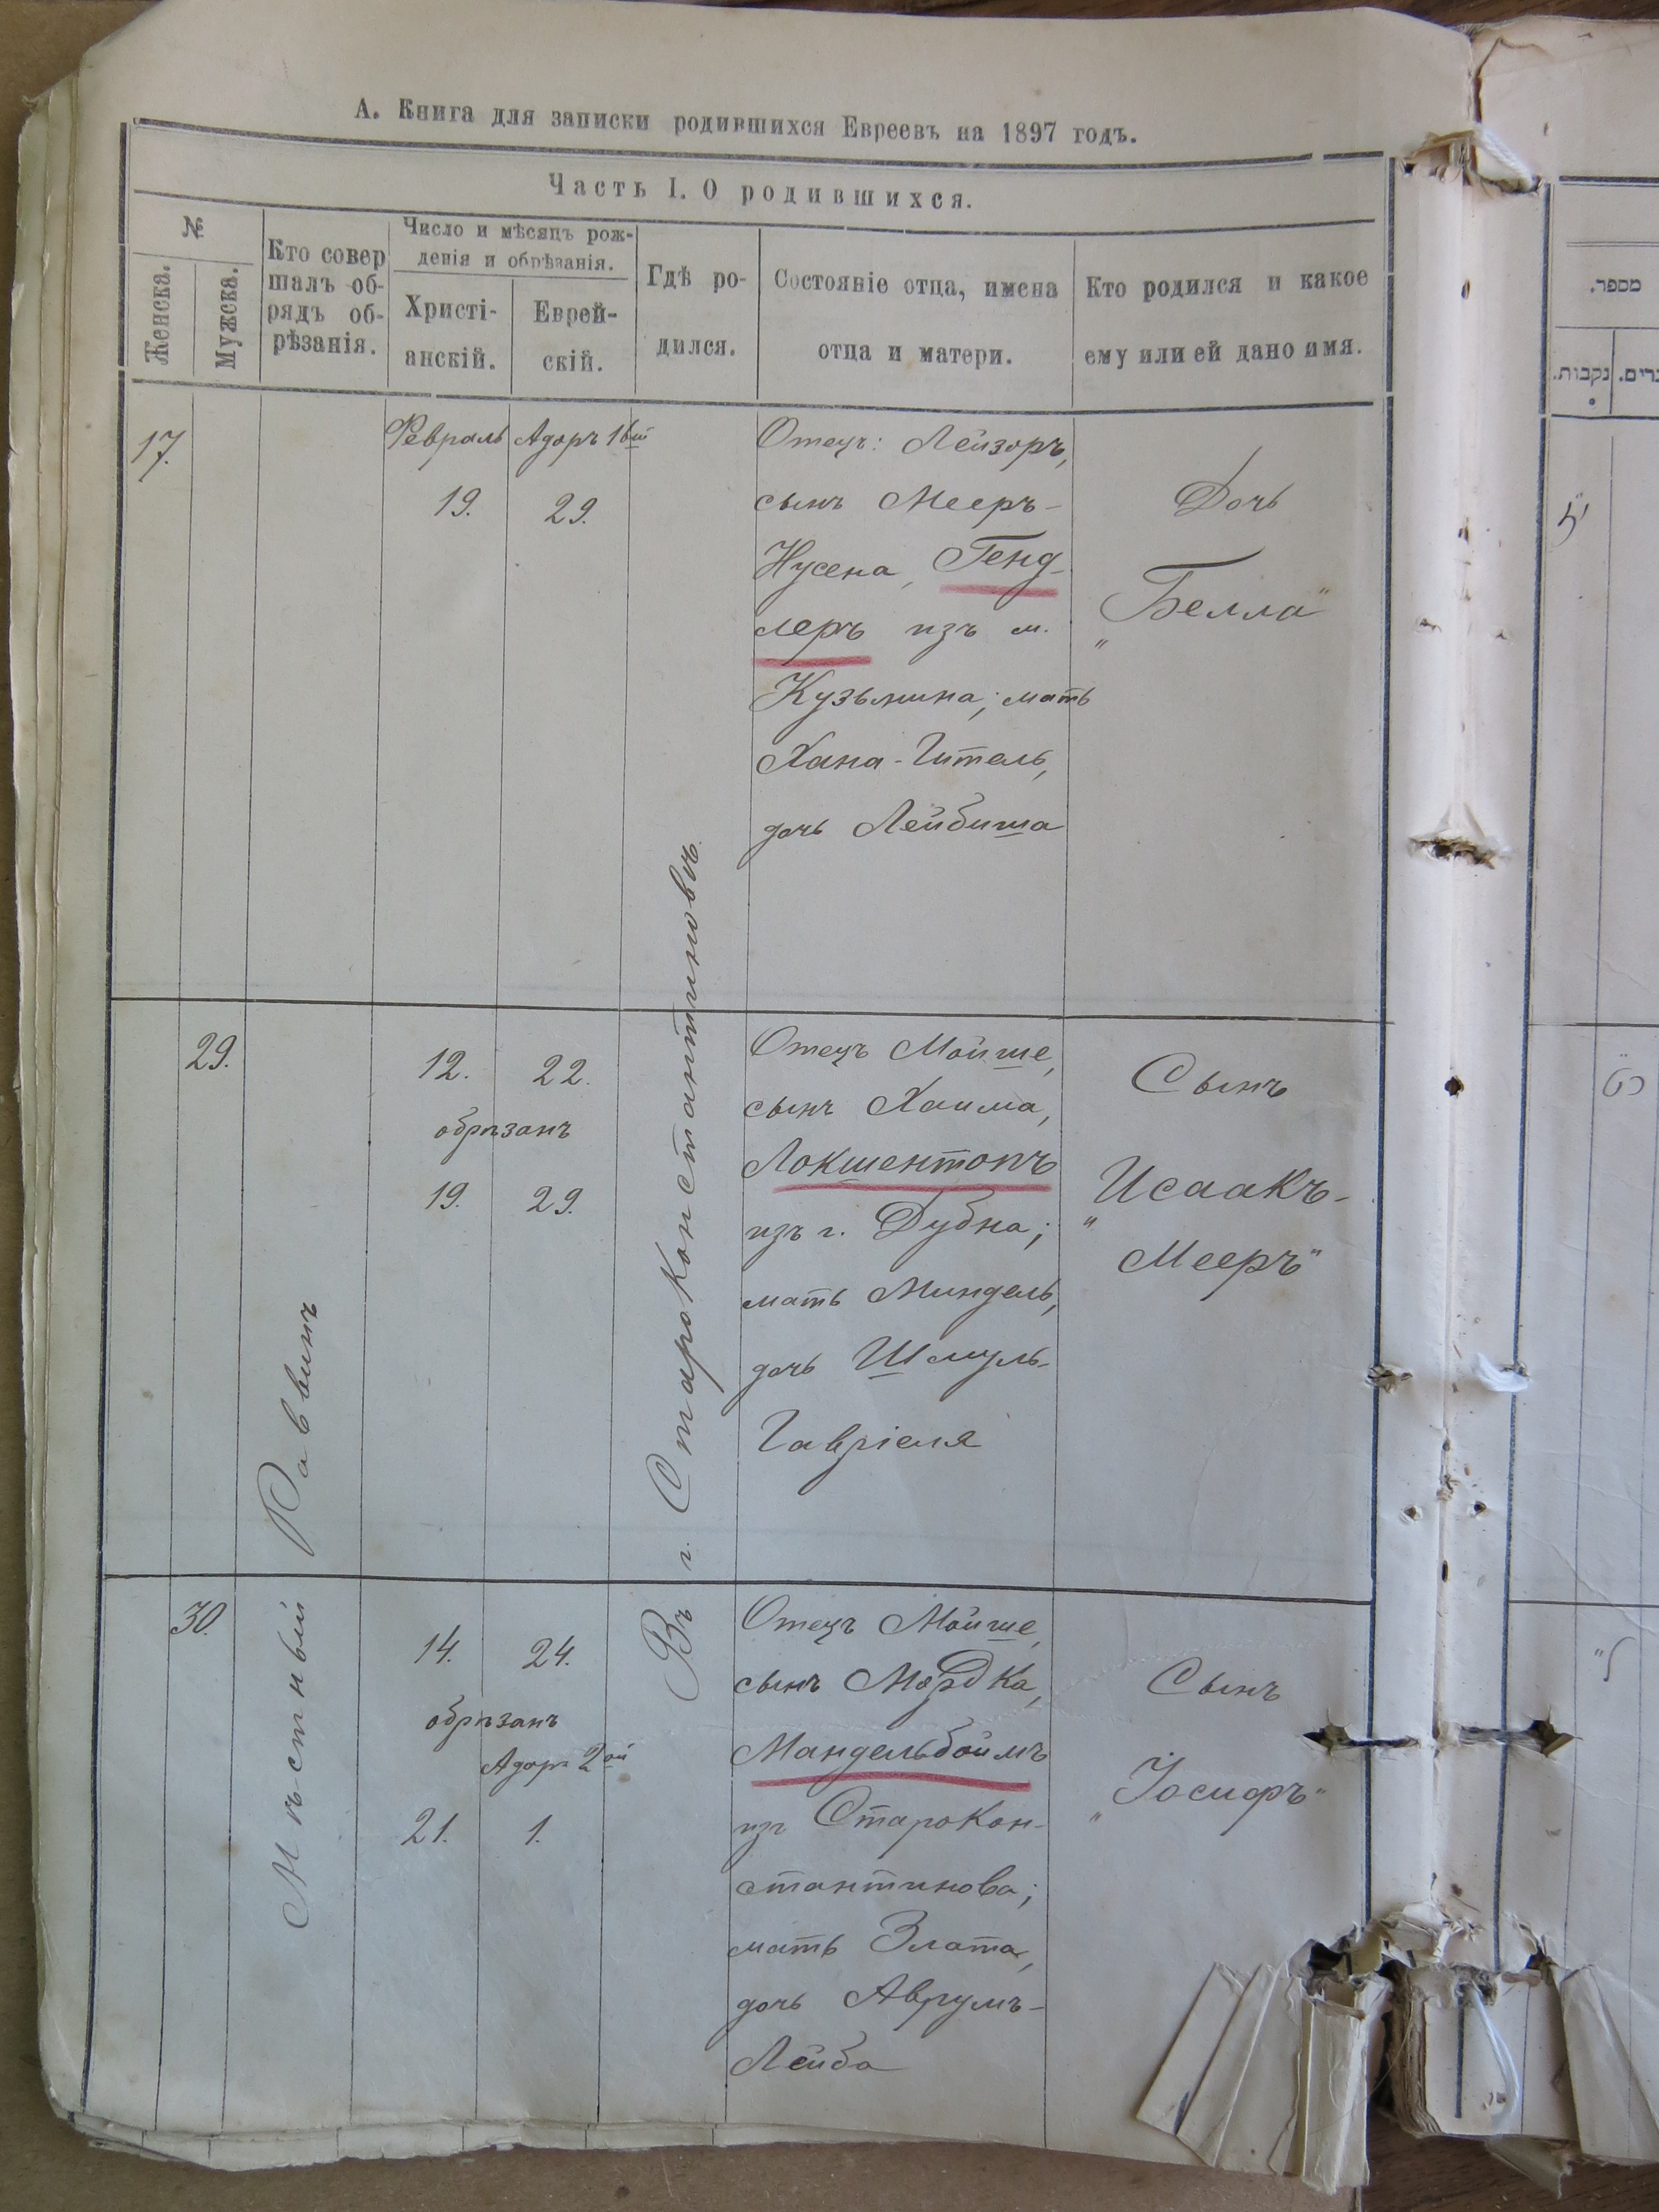 А. Книга для записки родившихся Евреевъ на 1897 годъ.
Часть I. О родившихся.
№
Женска.
Мужска.
Кто совер
шалъ об-
рядъ об-
рѣзанія.
Число и мѣсяцъ рож-
денія и обрѣзанія.
Христі-
анскій.
Еврей-
скій.
Гдѣ ро-
дился.
Состояніе отца, имена
отца и матери.
Кто родился и какое
ему или ей дано имя.
Мѣстный Раввинъ
Въ г. Староконстантиновѣ.
17.
Февраль
Адаръ 1ый
19.
29.
Отецъ: Лейзоръ,
сынъ Мееръ-
Нусена, Генд-
леръ изъ м.
Кузьмина; мать
Хана-Гитель,
дочь Лейбиша
Дочь
"Белла"
29.
12.
22.
обрѣзанъ
19.
29.
Отецъ Мойше,
сынъ Хаима,
Локшентопъ
изъ г. Дубна;
мать Миндель,
дочь Шмуль-
Гавріеля
Сынъ
"Исаакъ-
Мееръ"
30.
14.
24.
обрѣзанъ
Адаръ 2ой
21.
1.
Отецъ Мойше,
сынъ Мордка,
Мандельбоймъ
изъ Старокон-
стантинова;
мать Злата,
дочь Аврумъ-
Лейба
Сынъ
"Іосифъ"
מספר.
נקבות.